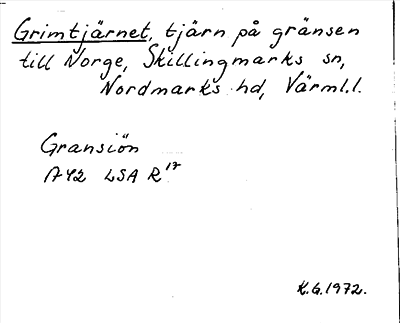 Grimtjärnet, tjärn på gränsen
till Norge, Skillingmarks sn,
Nordmarks hd, Värml.l.
Gransiön
A42 LSA R 17
K.G.1972.